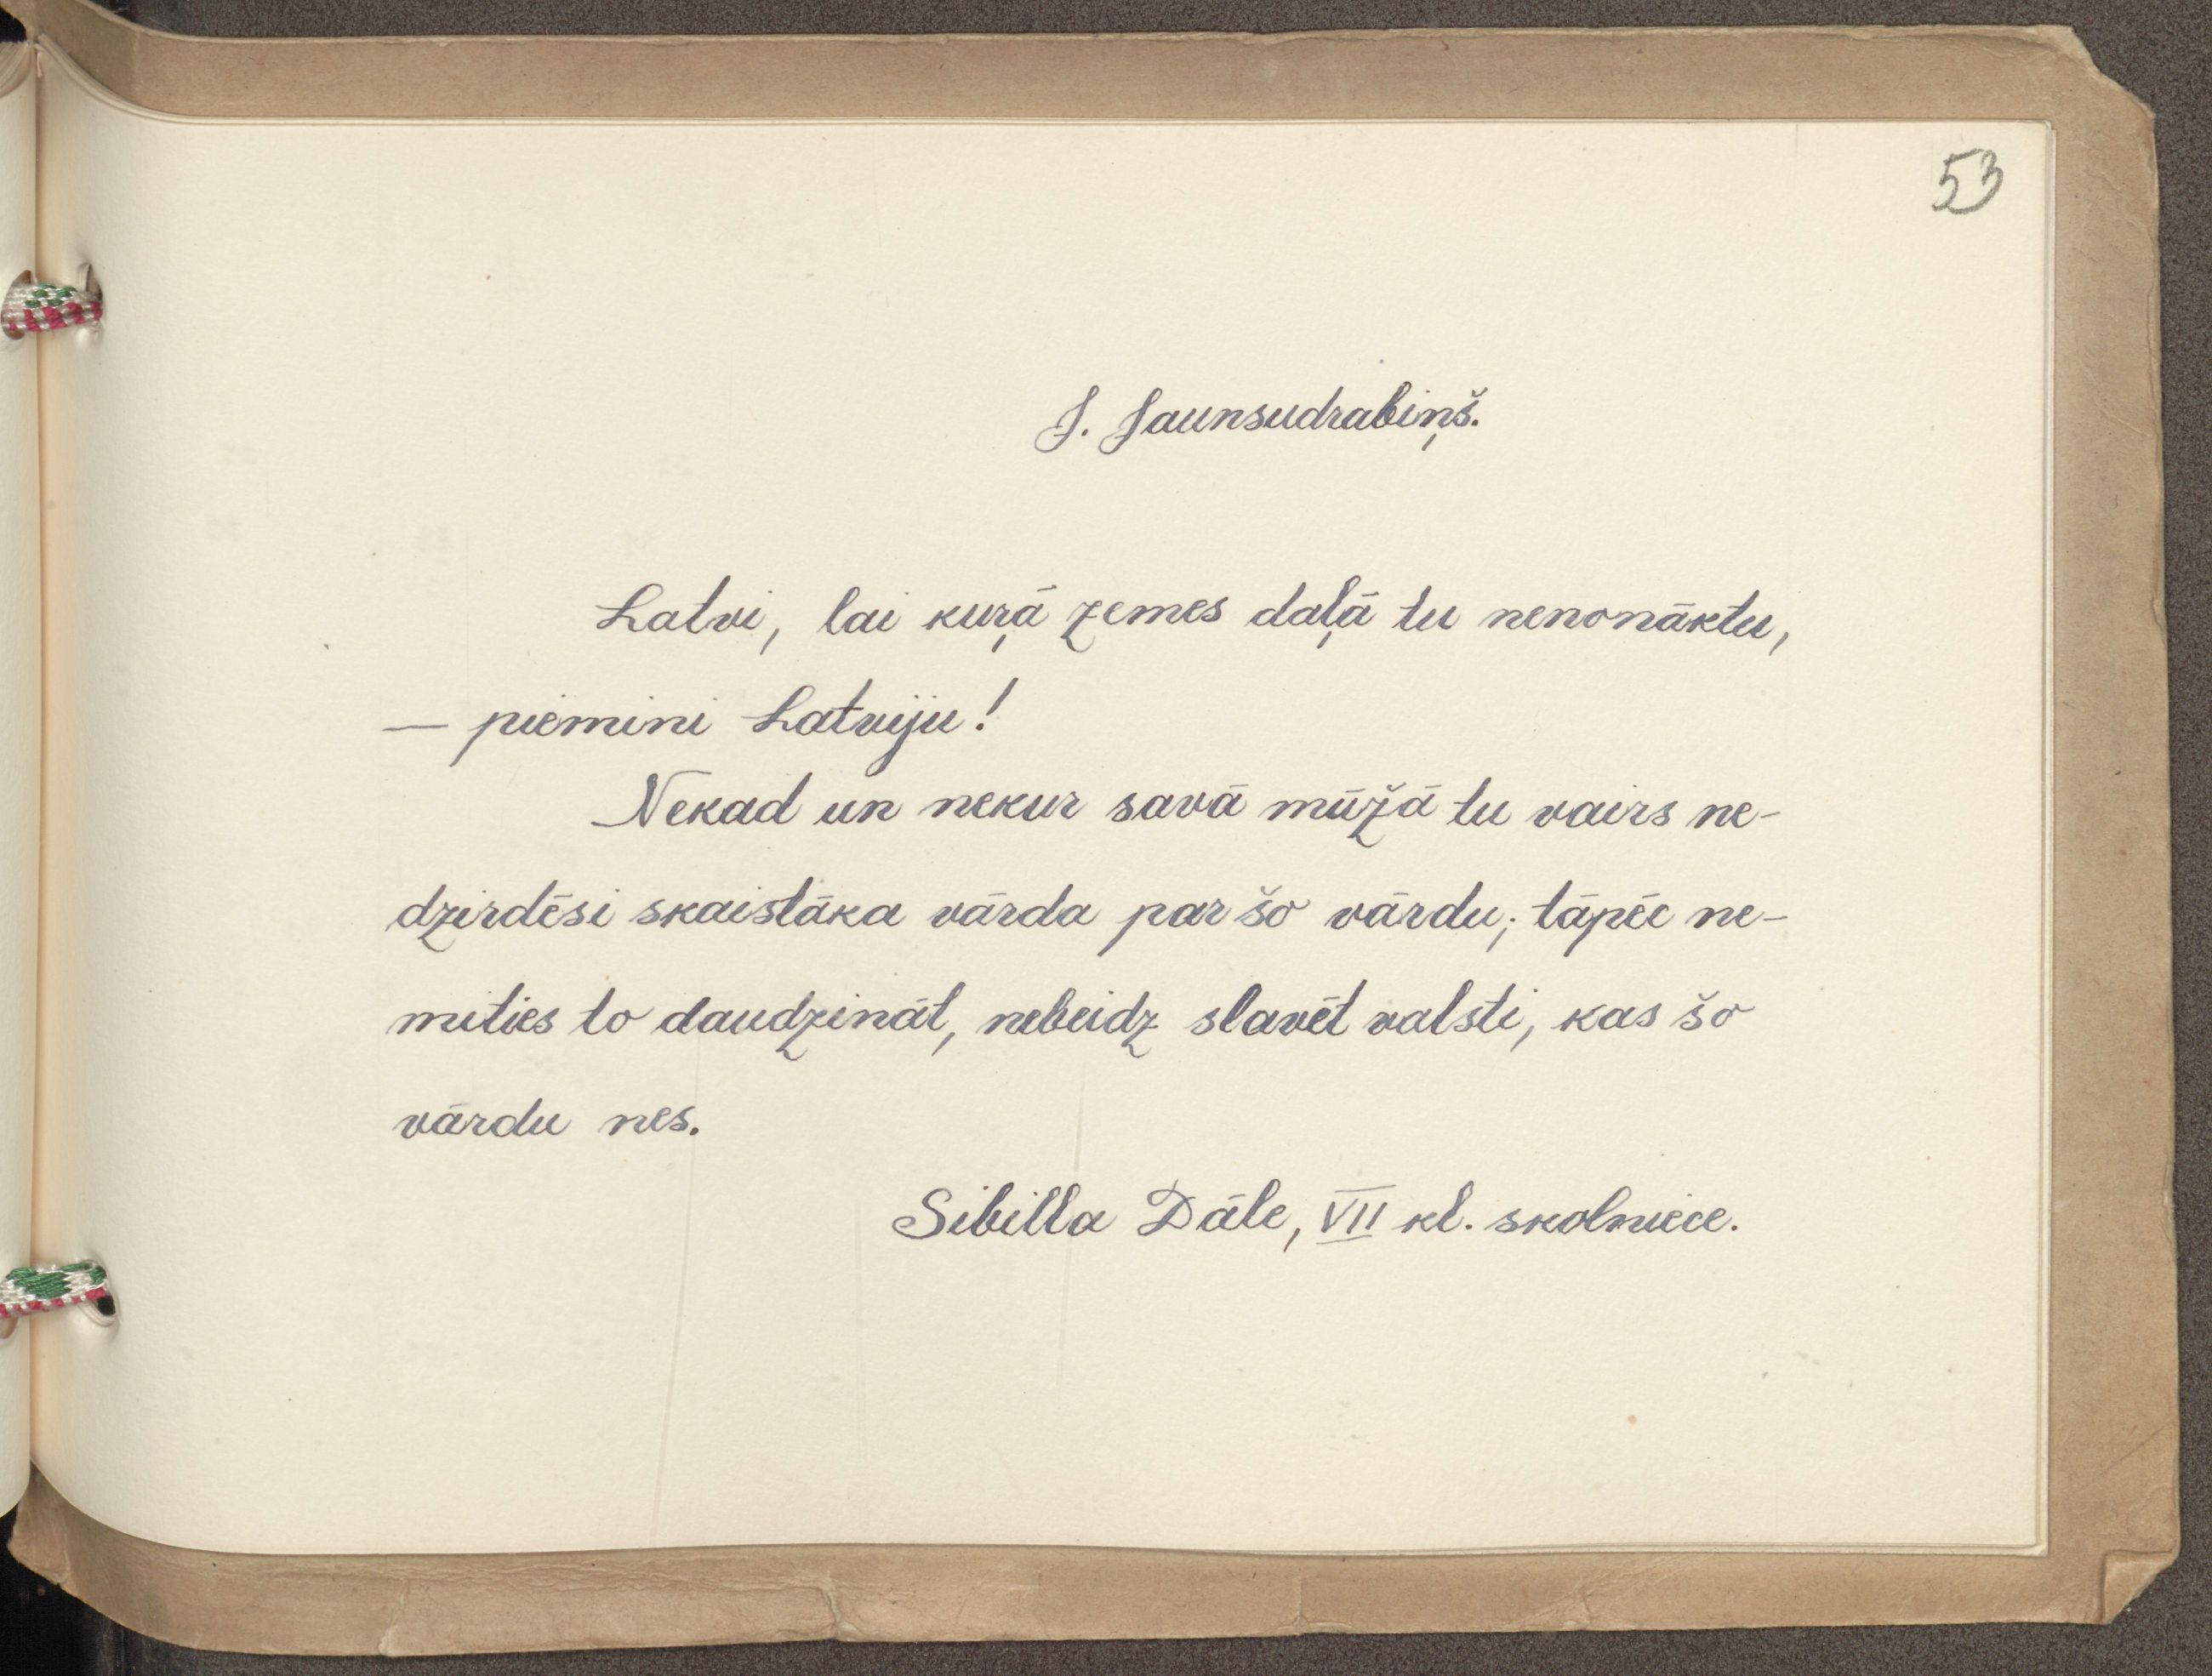 53
J. Jaunsudrabiņš.
Latvi, lai kuŗā zemes daļā tu nenonāktu,
— piemini Latviju!
Nekad un nekur savā mūžā tu vairs ne-
dzirdēsi skaistāka vārda par šo vārdu; tāpēc ne-
mities to daudzināt, nebeidz slavēt valsti, kas šo
vārdu nes.
Sibilla Dāle, VII kl. skolniece.